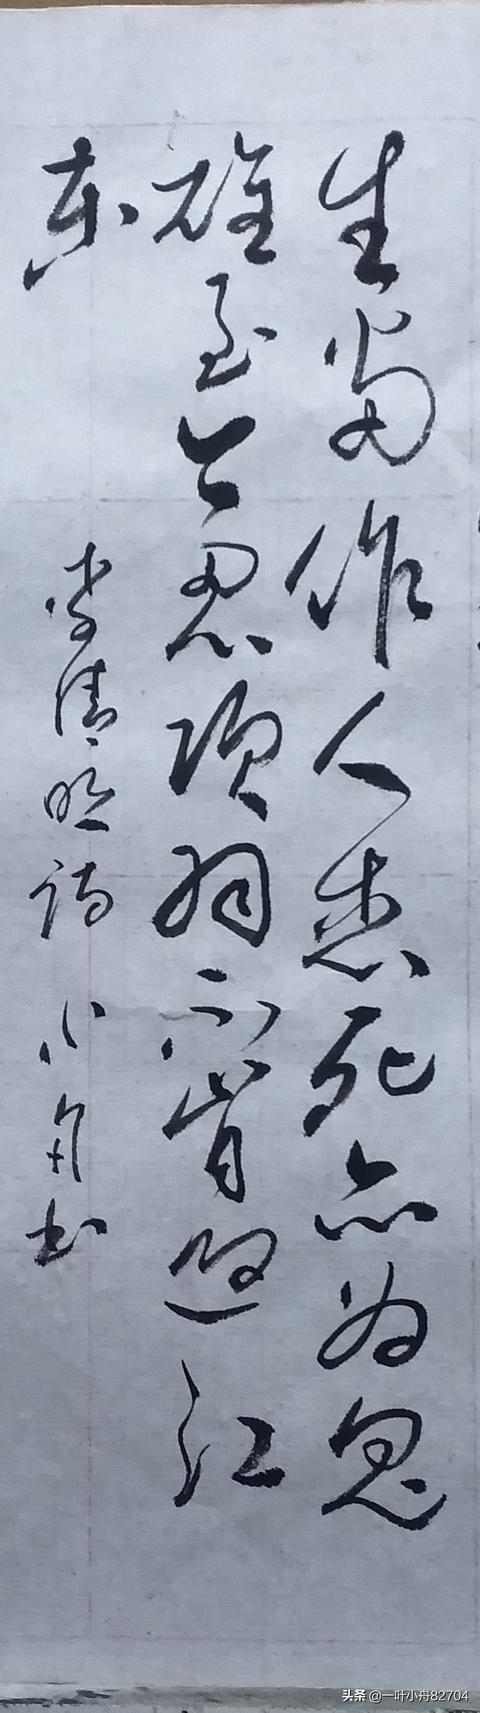 生当作人杰死亦为鬼
雄至今思项羽不肯过江
东
李清照诗 小舟书
头条 @一叶小舟82704